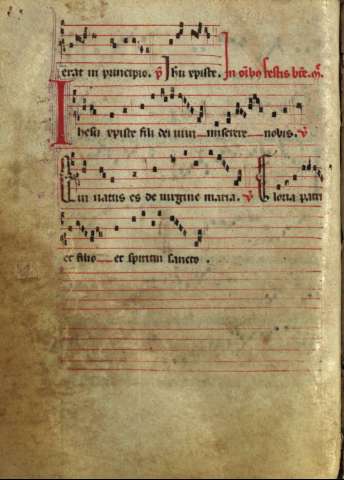 erat in principio. ℣ Ihu xpiste. In oībꝫ festis bte. m̄.
Ihesu xpiste fili dei uiui miserere nobis. ℣
Qui natus es de uirgine maria. ℣ Gloria patri
et filio et spiritui sancto .